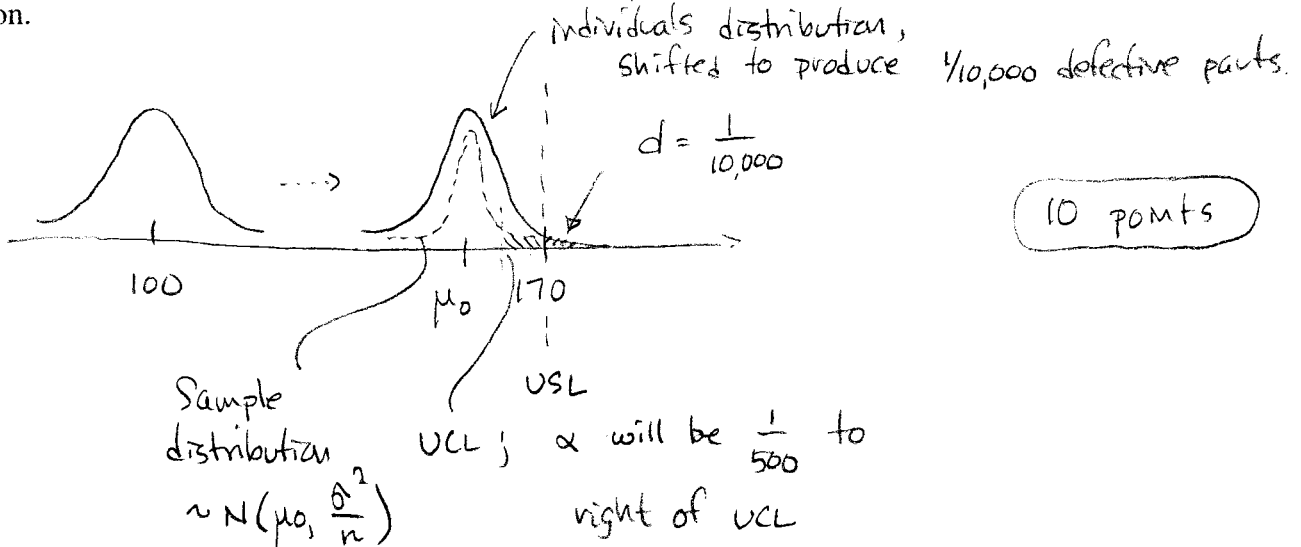 on.
individuals distribution,
shifted to produce 1/10,000 defective parts.
d = 1/10,000
10 points
100
μ₀
170
USL
Sample
distribution
~ N(μ₀, σ̂²/n)
UCL; α will be 1/500 to
right of UCL